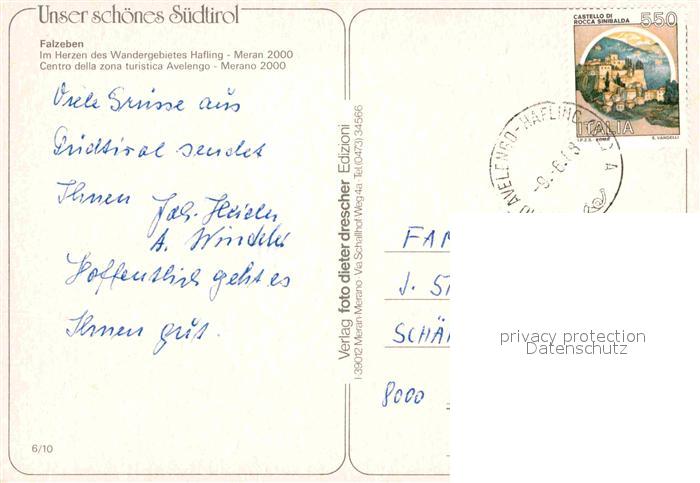 Unser schönes Südtirol
Falzeben
Im Herzen des Wandergebietes Hafling - Meran 2000
Centro della zona turistica Avelengo - Merano 2000
Viele Grüsse aus
Südtirol sendet
Ihnen
Joh.
A.
Hoffentlich geht es
Ihnen gut.
6/10
Verlag foto dieter drescher Edizioni
I-39012 Meran Merano · Via Schallhof Weg 4a · Tel (0473) 34566
CASTELLO DI
ROCCA SINIBALDA
550
ITALIA
I.P.Z.S. ROMA
S. VANGELLI
AVELENGO-HAFLING
FAM
J. ST
SCHÄ
8000
privacy protection
Datenschutz